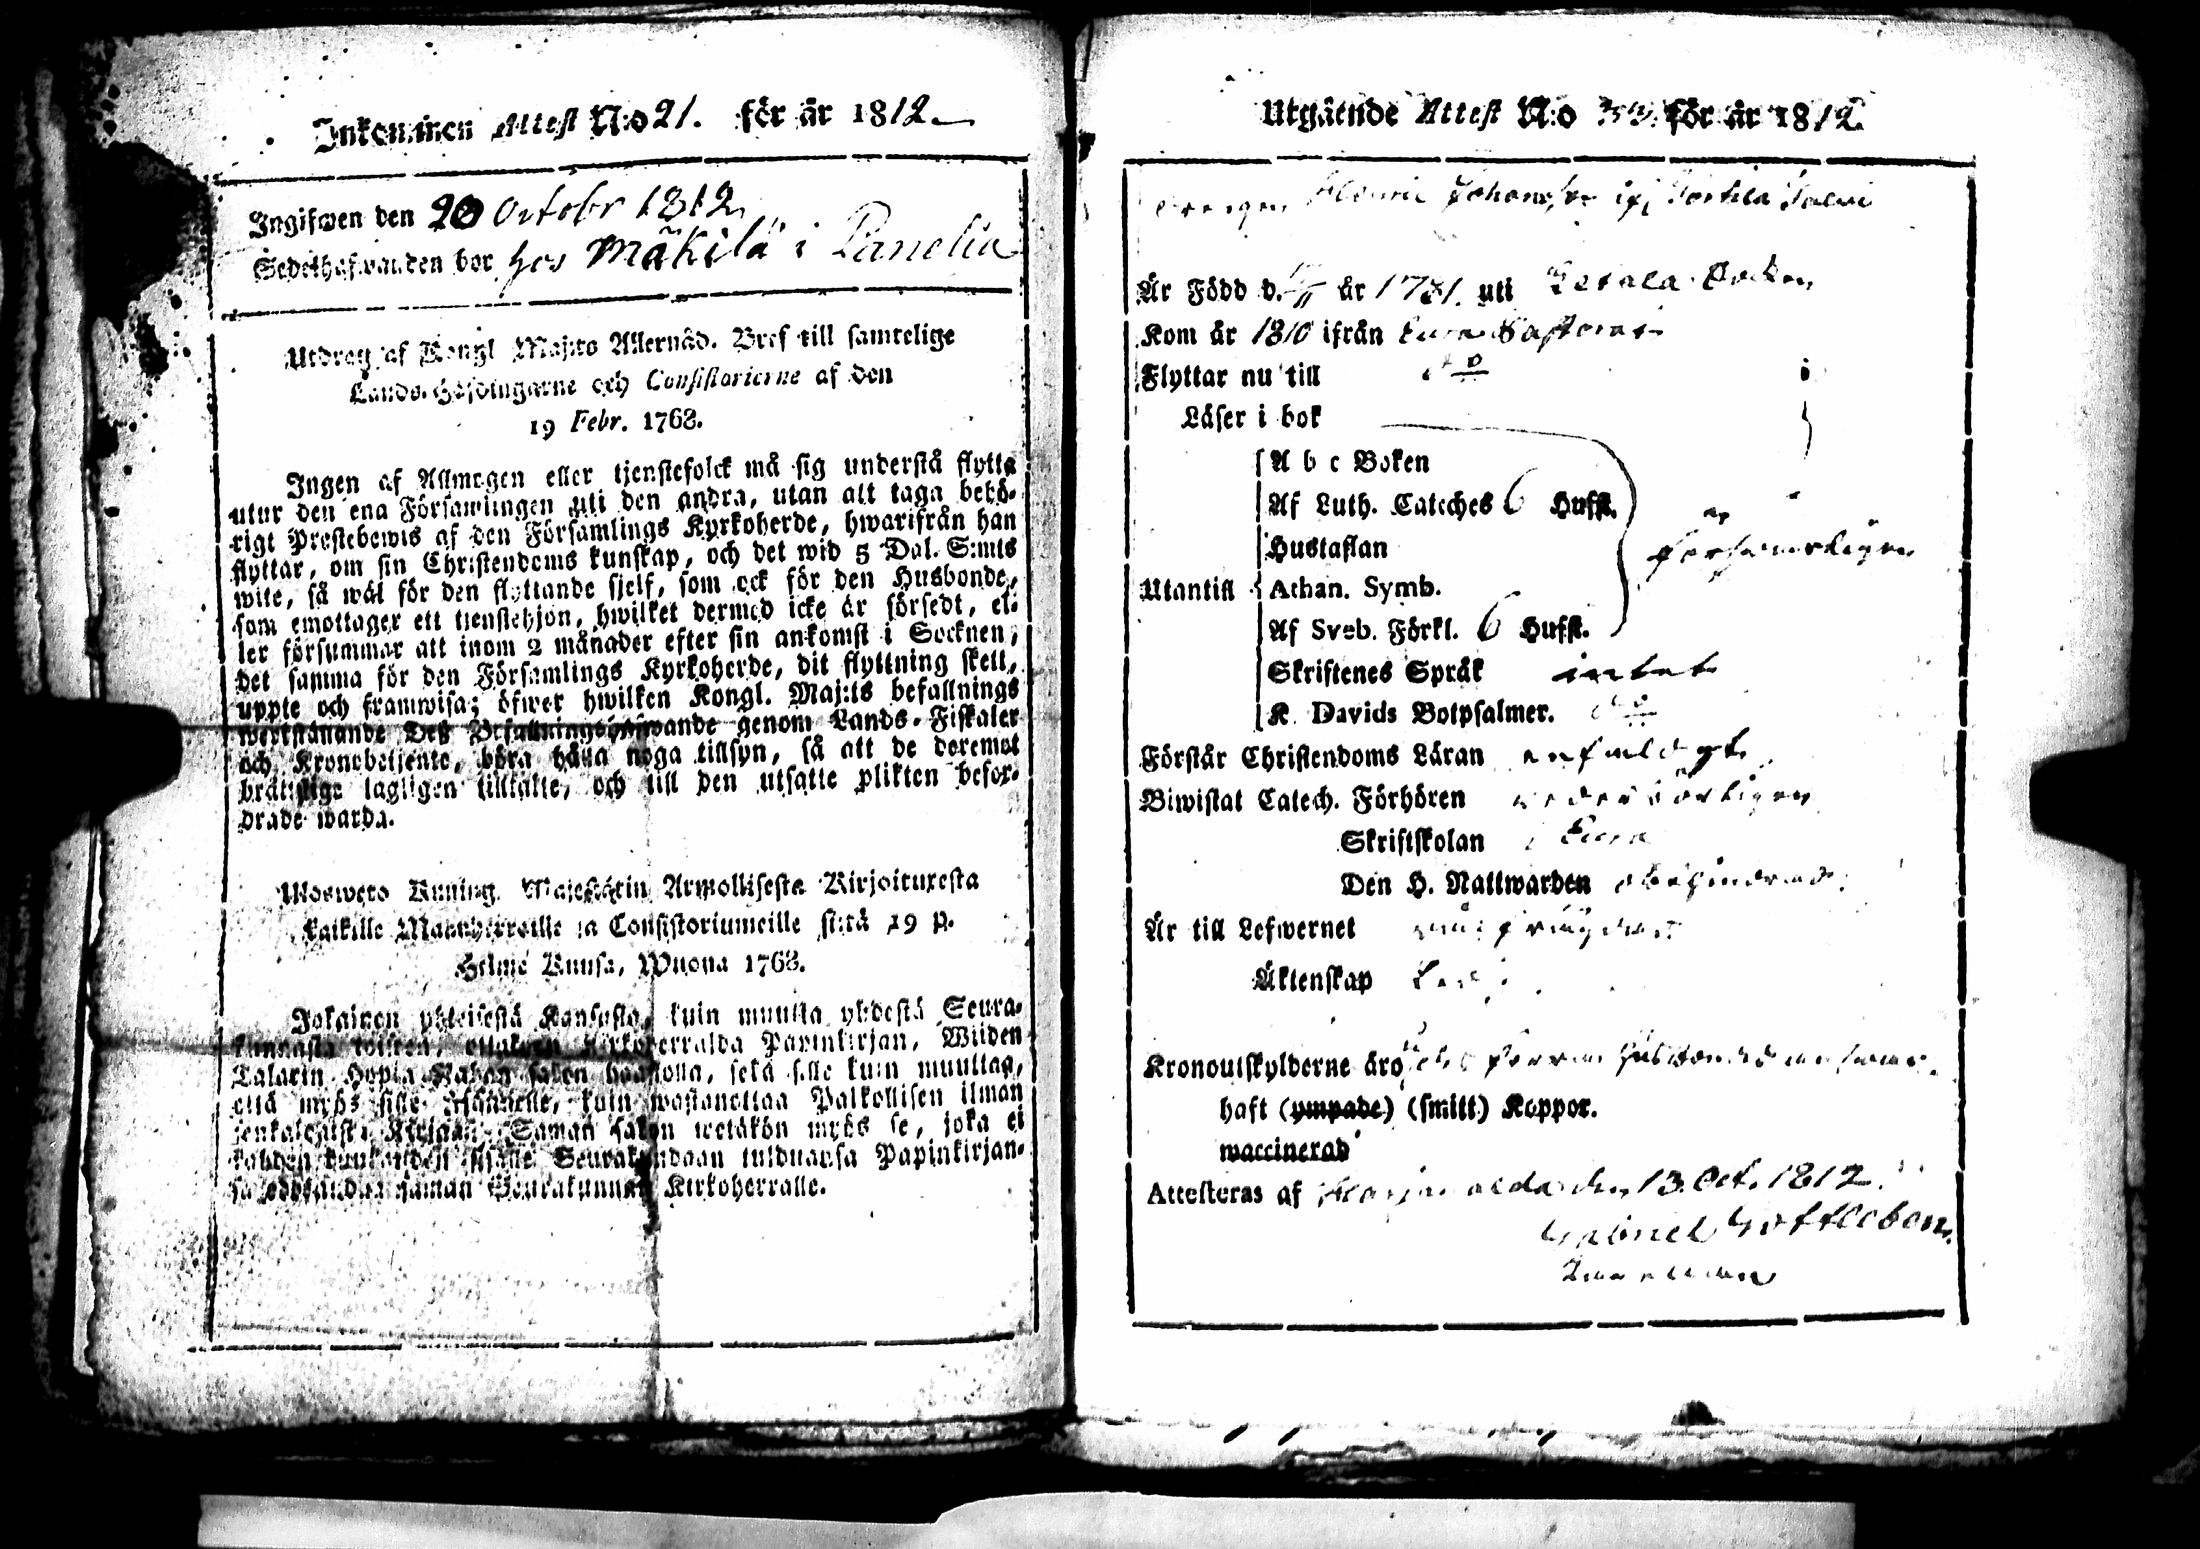 Inkommen Attest N:o 21. för år 1812.
Ingifwen den 20 Octobr 1812
Sedelhafwanden bor hos Mäkilä i Panelia
Utdrag af Kongl Maj:ts Allernåd. Bref till samtelige
Lands-Höfdingarne och Consistorierne af den
19 Febr. 1768.
Ingen af Allmogen eller tjenstefolck må sig understå flytta
utur den ena Församlingen uti den andra, utan att taga behö-
rigt Prestebewis af den Församlings Kyrkoherde, hwarifrån han
flyttar, om sin Christendoms kunskap, och det wid 5 Dal. S:mts
wite, så wäl för den flyttande sjelf, som ock för den Husbonde,
som emottager ett tienstehjon, hwilket dermed icke är försedt, el-
ler försummar att inom 2 månader efter sin ankomst i Socknen,
det samma för den Församlings Kyrkoherde, dit flyttning skett,
uppte och framwisa; öfwer hwilken Kongl. Maj:ts befallnings
werkställande Deß Befallningshafwande genom Lands-Fiskaler
och Kronobetjente, böra hålla noga tillsyn, så att de deremot
brättslige lagligen tilltalte, och till den utsatte plikten befor-
drade warda.
Ulosweto Kuning. Majestätin Armollisesta Kirjoituxesta
kaikille Maanherroille ja Consistoriumeille siitä 19 p.
Helme Kuusa, Wuona 1768.
Jokainen yhteisestä Kansasta, kuin muutta yhdestä Seura-
kunnasta toiseen, ottakoon Kirkoherralda Papinkirjan, Wiiden
Talarin Hopia Rahan sakon haastolla, sekä sille kuin muuttaa,
että myös sille Isännälle, kuin wastanottaa Palkollisen ilman
senkaltaista Kirjaa. Saman sakon wetäkön myös se, joka ei
kahden kuukauden sisälle Seurakundaan tulduansa Papinkirjan-
sa edeskanna saman Seurakunnan Kirkoherralle.
Utgående Attest N:o för år 1812.
Drengen Johansson
Är Född d. år 1781. uti Socken
Kom år 1810 ifrån Eura
Flyttar nu till d:o
Läser i bok
A b c Boken
Af Luth. Cateches 6 Hufst.
Hustaflan
förswarligen
Utantill Athan. Symb.
Af Sveb. Förkl. 6 Hufst.
Skriftenes Språk intet
K. Davids Botpsalmer. d:o
Förstår Christendoms Läran enfaldigt
Biwistat Catech. Förhören wederbörligen
Skriftskolan i Eura
Den H. Nattwarden obehindrad.
Är till Lefwernet
Äktenskap Ledig.
Kronoutskylderne äro
haft (ympade) (smitt) Koppor.
waccinerad
Attesteras af den 13. Oct. 1812.
Gabriel Gottleben.